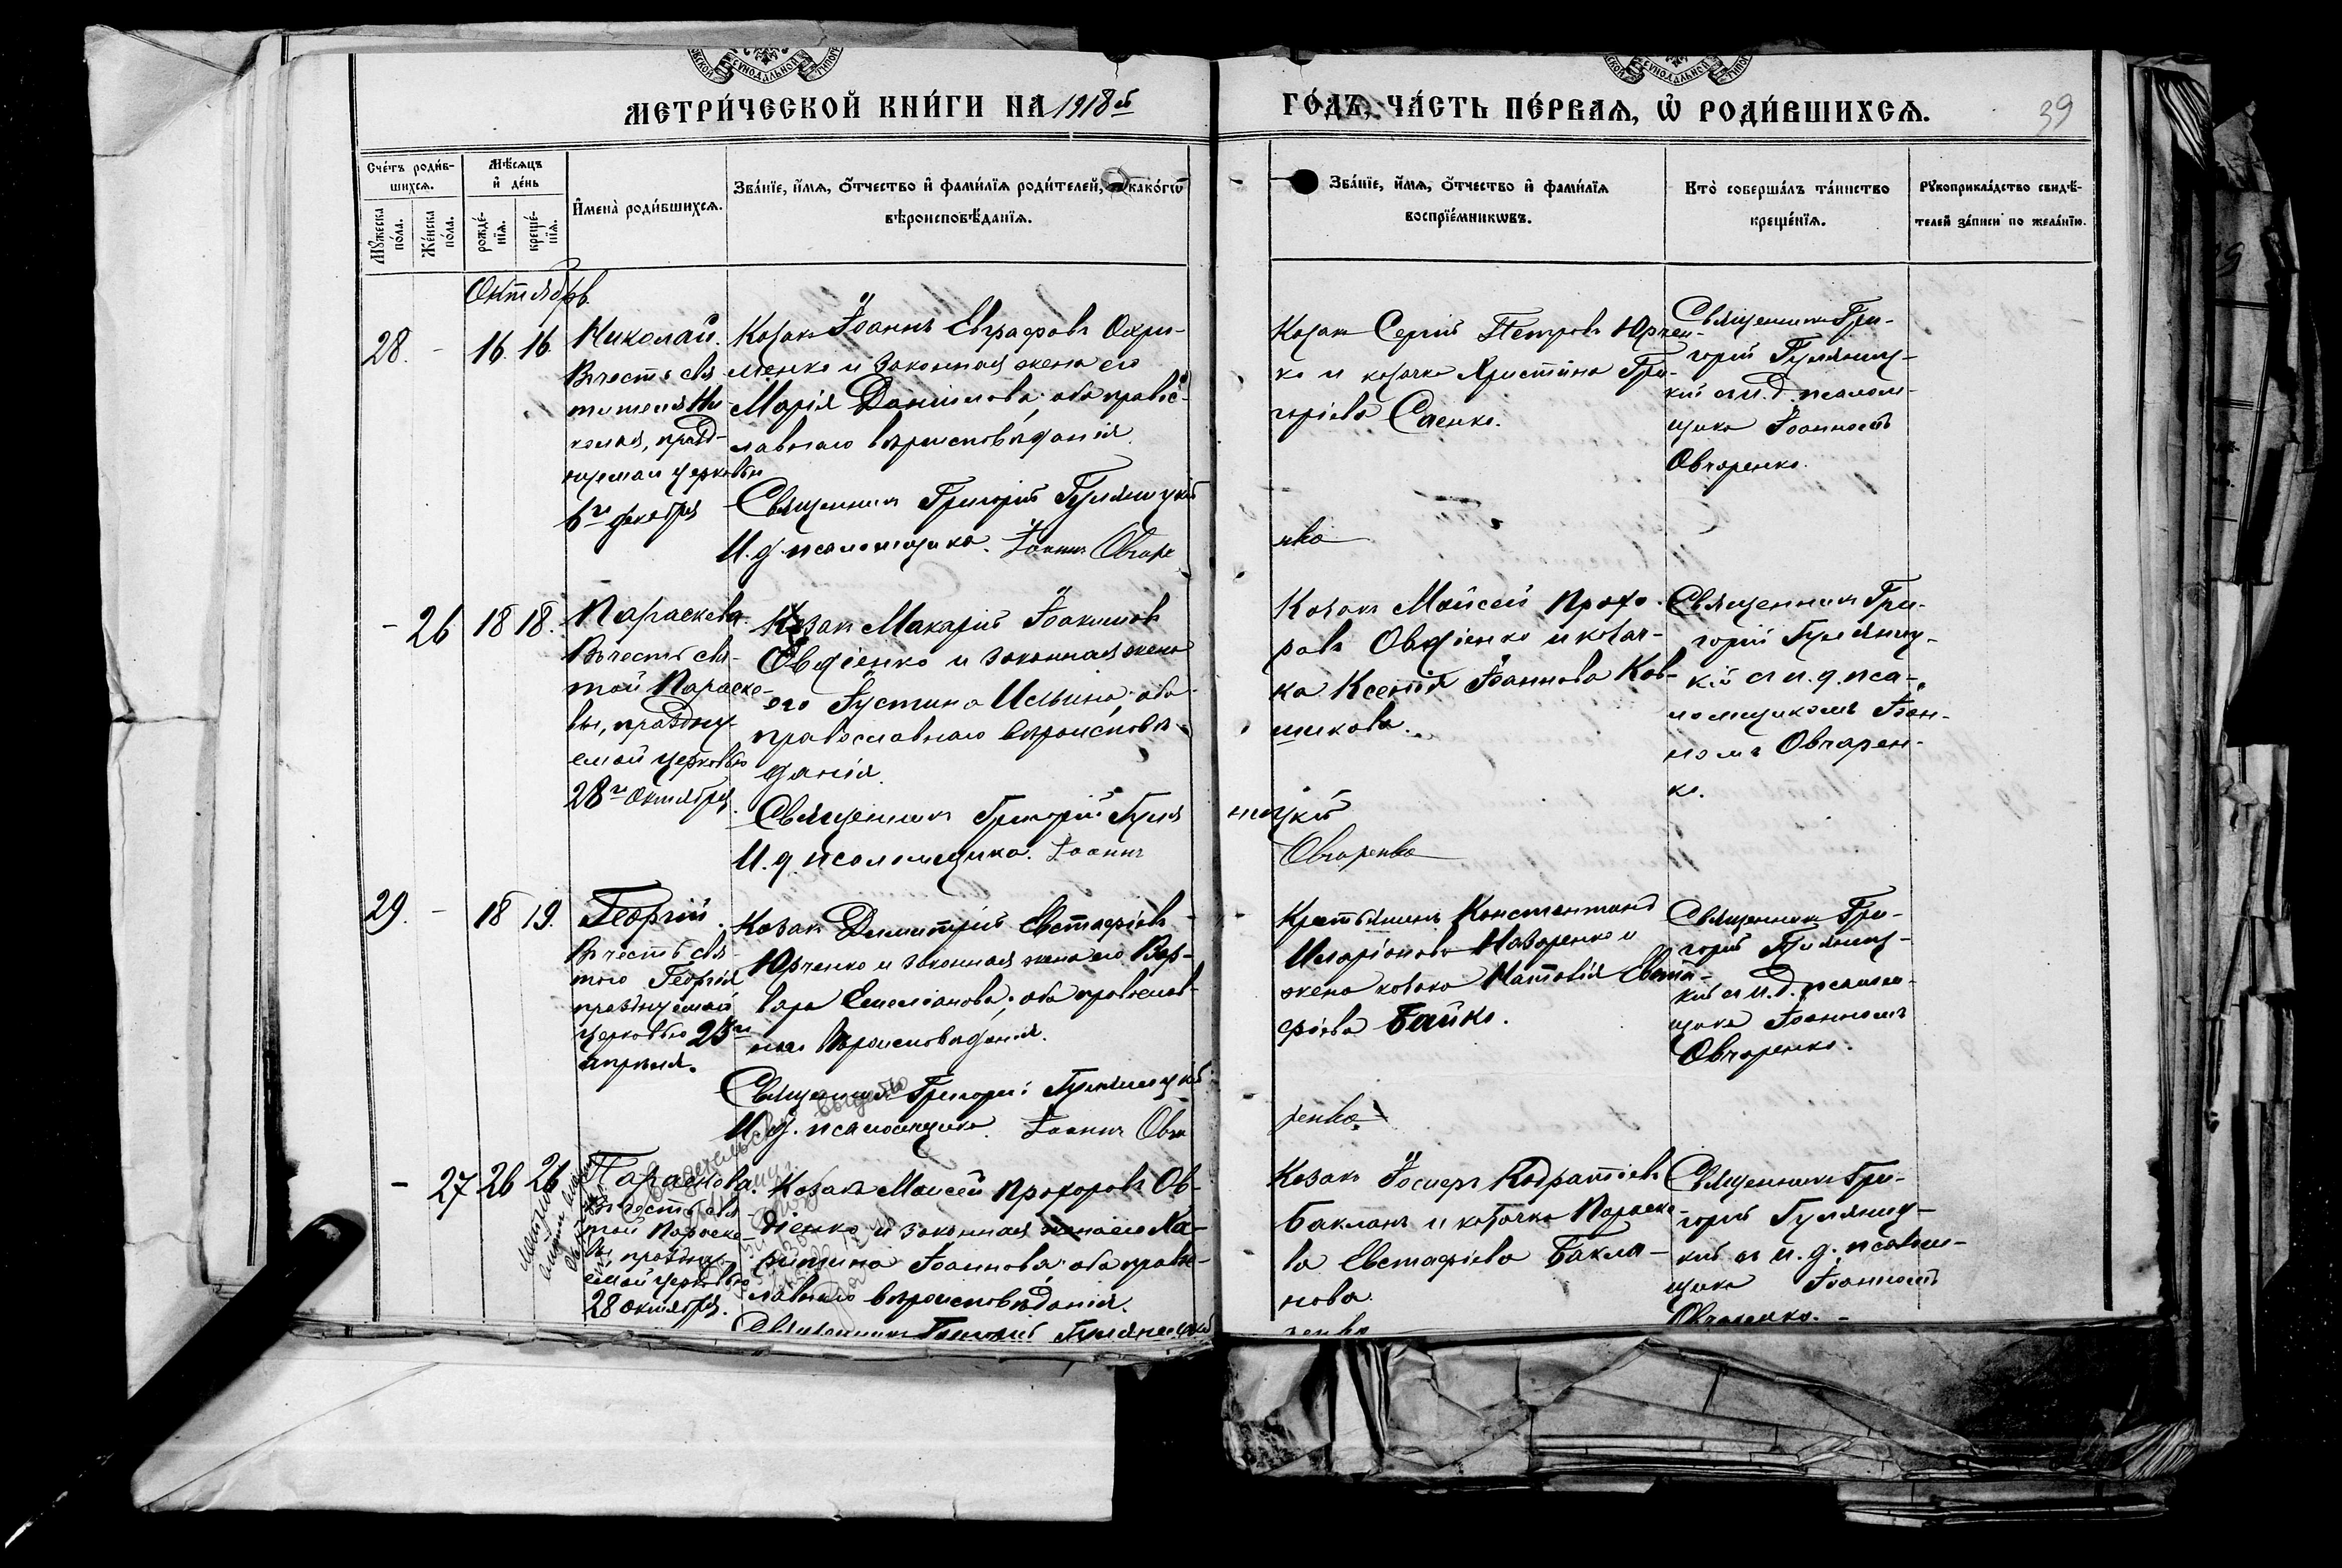 МЕТРИ́ЧЕСКОЙ КНИ́ГИ НА 1918й
ГО́ДЪ, ЧА́СТЬ ПЕ́РВАѦ, Ѡ҆ РОДИ́ВШИХСѦ.
39
Сче́тъ роди́в-
шихсѧ.
Мѣ́сѧцъ
и҆ де́нь
Мꙋ́жеска
по́ла.
Же́нска
по́ла.
рожде́-
нїѧ.
креще́-
нїѧ.
И҆мена̀ роди́вшихсѧ.
Зва́нїе, и҆́мѧ, ѻ҆́тчество и҆ фами́лїѧ роди́телей, и҆ како́гѡ
вѣроисповѣ́данїѧ.
Зва́нїе, и҆́мѧ, ѻ҆́тчество и҆ фами́лїѧ
воспрїе́мникѡвъ.
Кто̀ соверша́лъ та́инство
креще́нїѧ.
Рꙋкоприкла́дство свидѣ́-
телей за́писи по жела́нїю.
Октябрь
28. - 16. 16.
Николай.
Въ честь свя
тителя Ни
колая, празд-
церковью
6го декабря
Козакъ Іоаннъ Евграфовъ Охри-
менко и законная жена его
Марія Даниилова; оба правос-
лавнаго вѣроисповѣданія.
Священникъ Григорій Гуляницкій
И. д. псаломщика. Іоаннъ Овчаре
нко
Козакъ Сергій Петровъ Юрчен-
ко и козачка Христина Гри-
горіева Саенко.
Священникъ Гри-
горій Гуляниц-
кій съ и. д. псалом-
щика Іоанномъ
Овчаренко.
- 26 18 18.
Параскева.
Въ честь свя-
той Параске-
вы, праздну-
емой церковью
28го октября.
Козакъ Макарій Іоакимовъ
Овдіенко и законная жена
его Іустина Ильина; оба
православнаго вѣроисповѣ-
данія.
Священникъ Григорій Гуля
И. д. псаломщика. Іоаннъ
ницкій
Овчаренко
Козакъ Моисей Прохо-
ровъ Овдіенко и козач-
ка Ксенія Іоаннова Ков-
шикова.
Священникъ Гри-
горій Гуляниц-
кій съ и. д. пса-
ломщикомъ Іоан-
номъ Овчарен-
ко.
29. - 18 19.
Георгій.
Въ честь свя-
того Георгія
празднуемой
церковью 23го
апрѣля.
Козакъ Димитрій Евстафіевъ
Юрченко и законная жена его Вар-
вара Емеліанова; оба православ-
наго вѣроисповѣданія.
Священникъ Григорій Гуляницкій
И. д. псаломщика. Іоаннъ Овча
ренко.
Крестьянинъ Константинъ
Иларіоновъ Назаренко и
жена козака Наталія Евста-
фіева Байко.
Священникъ Гри-
горій Гуляниц-
кій съ и. д. псалом-
щика Іоанномъ
Овчаренко.
- 27 26 26
Параскева.
Въ честь свя
той Параске-
вы, праздну-
емой церковью
28 октября.
Козакъ Моисей Прохоровъ Ов-
діенко и законная жена его Ха-
ритина Іоаннова; оба правос-
лавнаго вѣроисповѣданія.
Священникъ Григорій Гуляницкій
ренко
Козакъ Іосифъ Кодратіевъ
Бакланъ и козачка Параске-
ва Евстафіева Бакла-
нова.
Священникъ Гри-
горій Гуляниц-
кій съ и. д. псалом-
щика Іоанномъ
Овчаренко. -